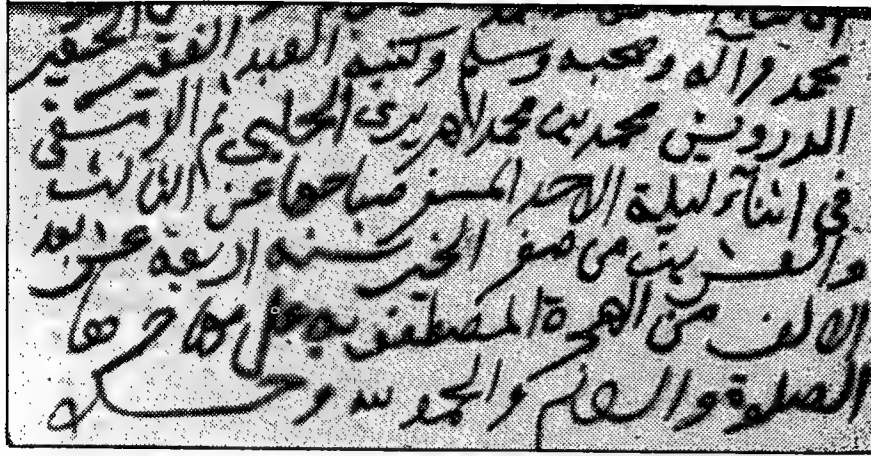 محمد وآله وصحبه وسلم وكتبه العبد الفقير الحقير
الدرويش محمد بن محمد الاهريري الحلبي ثم الدمشقي
في اثناء ليلة الاحد المسفر صباحها عن الثالث
والعشرين من صفر الخير سنة اربعة عشر بعد
الالف من الهجرة المصطفوية على مهاجرها
الصلوة والسلام والحمد لله وحده